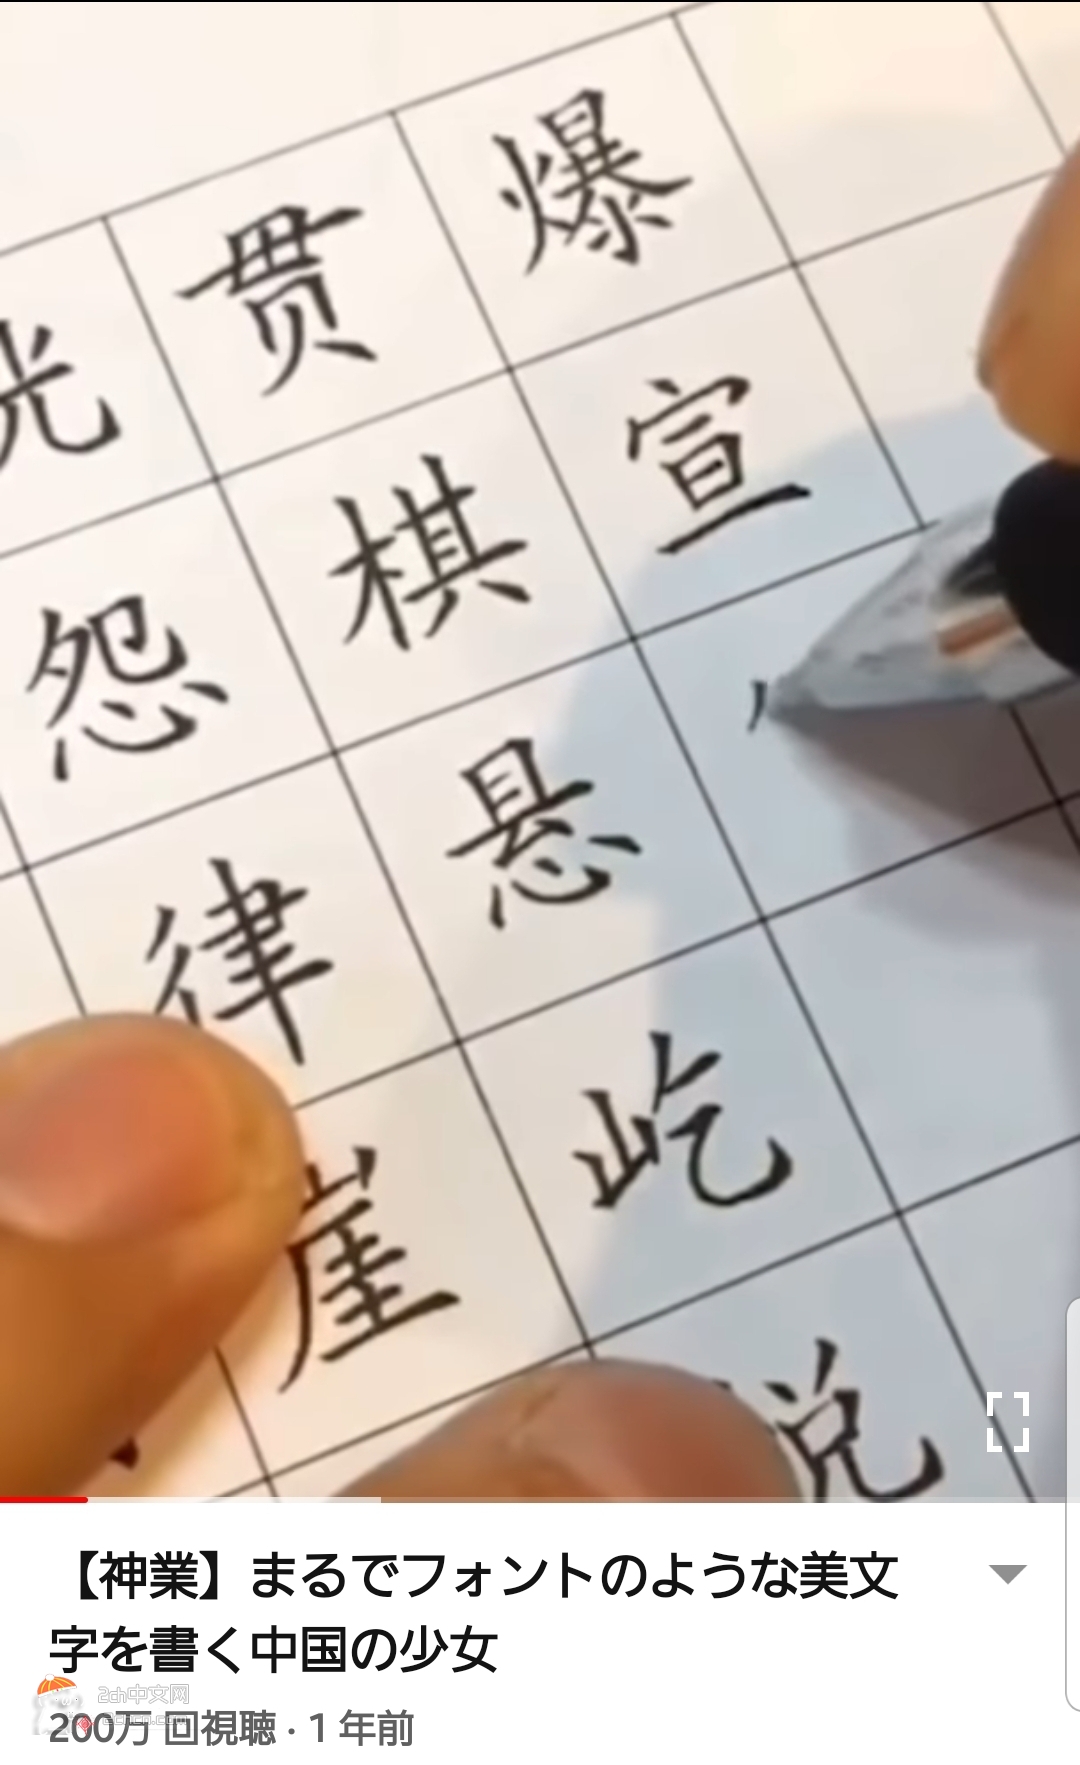 光 贯 爆
怨 棋 宣
律 悬
崖 屹
悦
【神業】まるでフォントのような美文
字を書く中国の少女
2ch中文网
200万 回視聴・1 年前